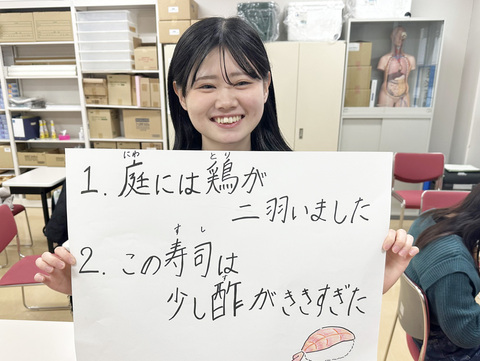 1. 庭には鶏が
二羽いました
2. この寿司は
少し酢がききすぎた